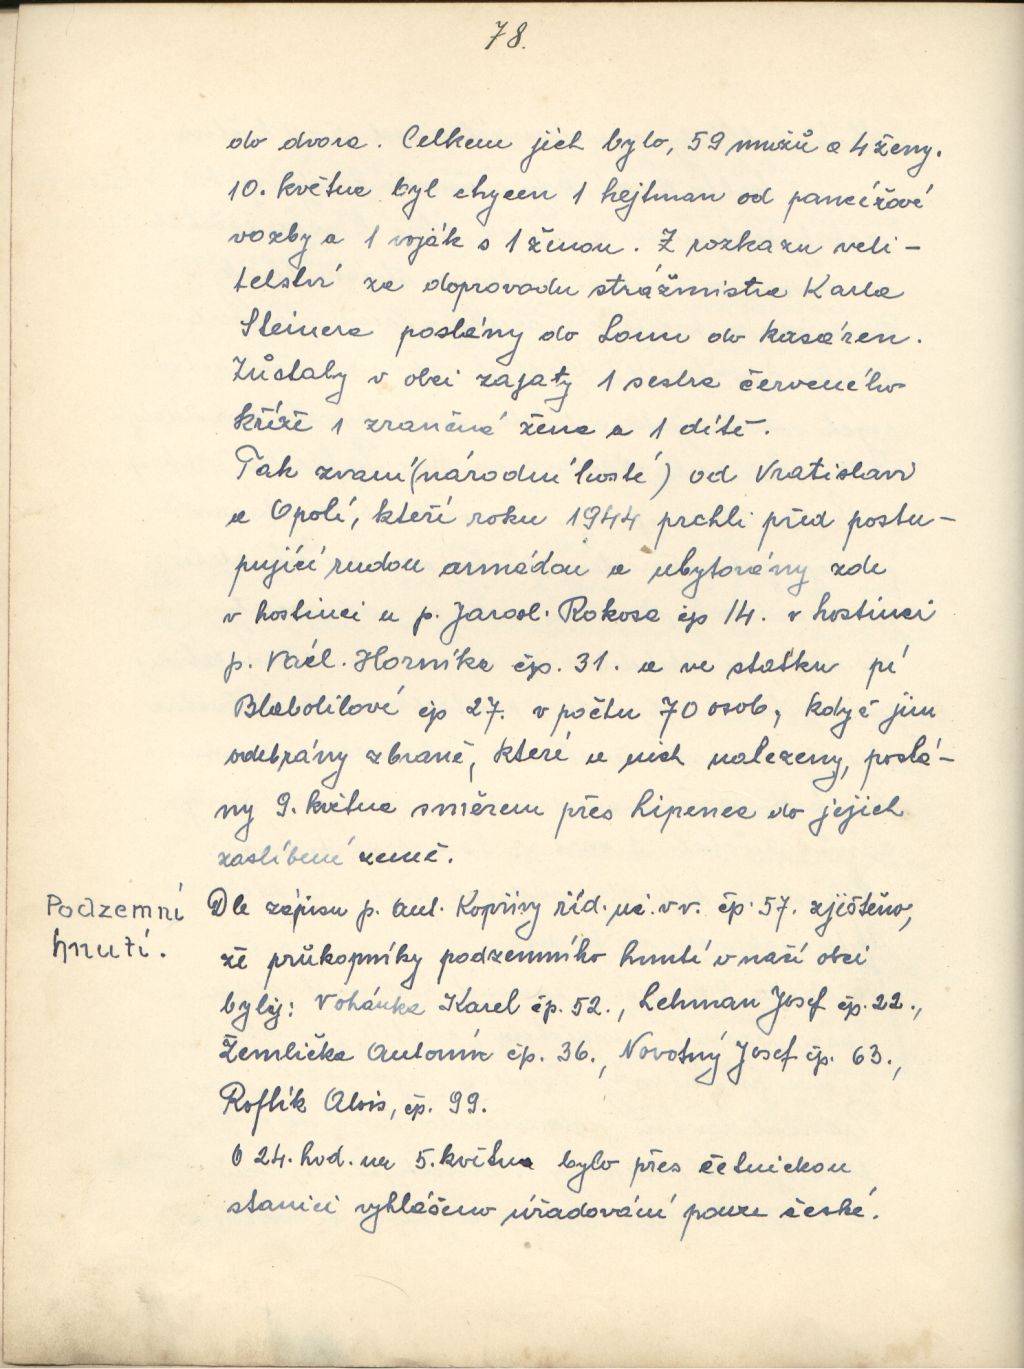 78.
do dvora. Celkem jich bylo, 59 mužů a 4 ženy.
10. května byl chycen 1 hejtman od pancéřové
vozby a 1 voják s 1 ženou. Z rozkazu veli-
telství za doprovodu strážmistra Karla
Steinera poslány do Loun do kasáren.
Zůstaly v obci zajaty 1 sestra červeného
kříže 1 zraněná žena a 1 dítě.
Tak zvaní (národní hosté) od Vratislavi
a Opolí, kteří roku 1944 prchli před postu-
pující rudou armádou a ubytovány zde
v hostinci u p. Jarosl. Rokosa čp 14. v hostinci
p. Václ. Horníka čp. 31. a ve statku pí
Blabolilové čp 27. v počtu 70 osob, když jim
odebrány zbraně, které u nich nalezeny, poslá-
ny 9. května směrem přes Lipenec do jejich
zaslíbené země.
Podzemní
hnutí.
Dle zápisu p. Ant. Kopřivy říd. uč. v v. čp. 57. zjištěno,
že průkopníky podzemního hnutí v naší obci
byly: Vohánka Karel čp. 52., Lehman Josef čp. 22.,
Žemlička Antonín čp. 36., Novotný Josef čp. 63.,
Roflík Alois, čp. 99.
O 24. hod. na 5. května bylo přes četnickou
stanici vyhlášeno úřadování pouze české.